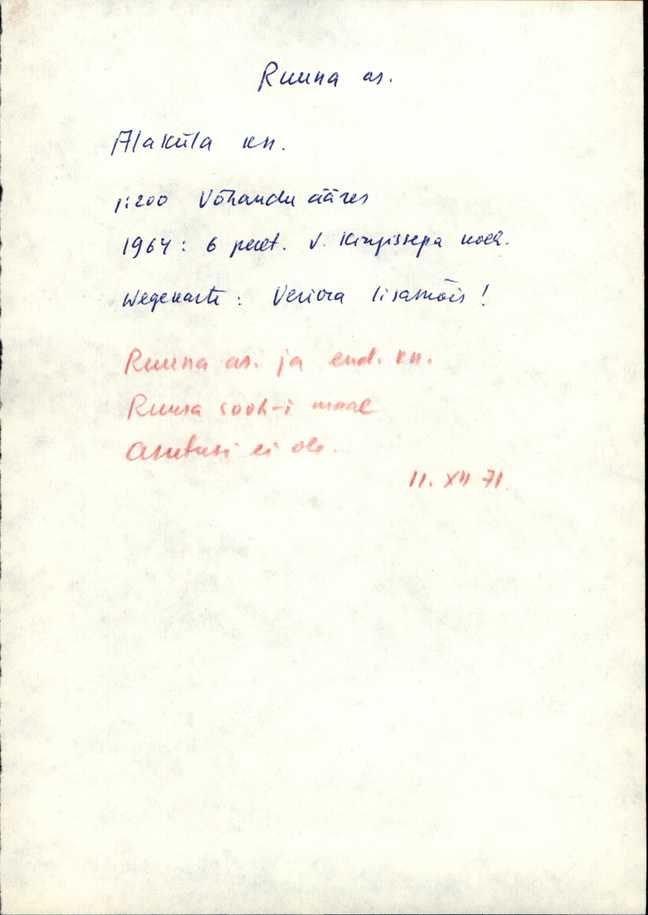 Ruuna as.
Alaküla kn.
1:200 Võhandu ääres
1964: 6 peret. V. Kingissepa kolh.
Wegekarte: Veriora lisamõis!
Ruuna as. ja end. kn.
Ruusa sooh-i maal
Asutusi ei ole.
11. XII 71.